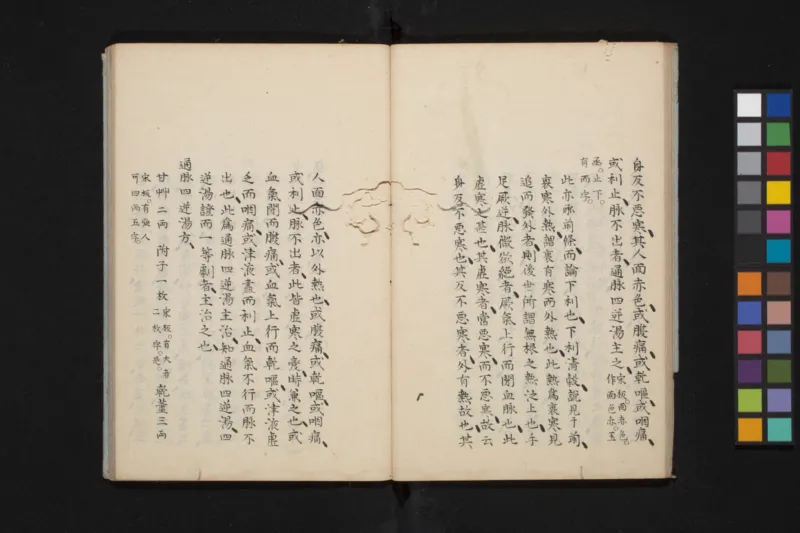 身反不惡寒、其人面赤色、或腹痛、或乾嘔、或咽痛、
或利止、脉不出者、通脉四逆湯主之、宋板面赤色。作面色赤。玉
函。止下。有而字。
此亦承前條、而論下利也、下利清穀、說見于前、
裏寒外熱、謂裏有寒而外熱也、此熱爲裏寒見
追而發外者、則後世所謂無根之熱泛上也、手
足厥逆、脉微欲絕者、厥氣上行而閉血脉也、此
虛寒之甚也、其虛寒者、當惡寒、而不惡寒、故云
身反不惡寒也、其反不惡寒者、外有熱故也、其
人面赤色、亦以外熱也、或腹痛、或乾嘔、或咽痛、
或利止、脉不出者、此皆虛寒之變、時兼之也、或
血氣閉而腹痛、或血氣上行而乾嘔、或津液虛
乏而咽痛、或津液盡而利止、血氣不行而脉不
出也、此爲通脉四逆湯主治、知通脉四逆湯、四
逆湯證而一等劇者、主治之也、
通脉四逆湯方、
甘艸二兩　附子一枚宋板。有大者二枚字。是。　乾薑三兩
宋板。有強人可四兩五字。